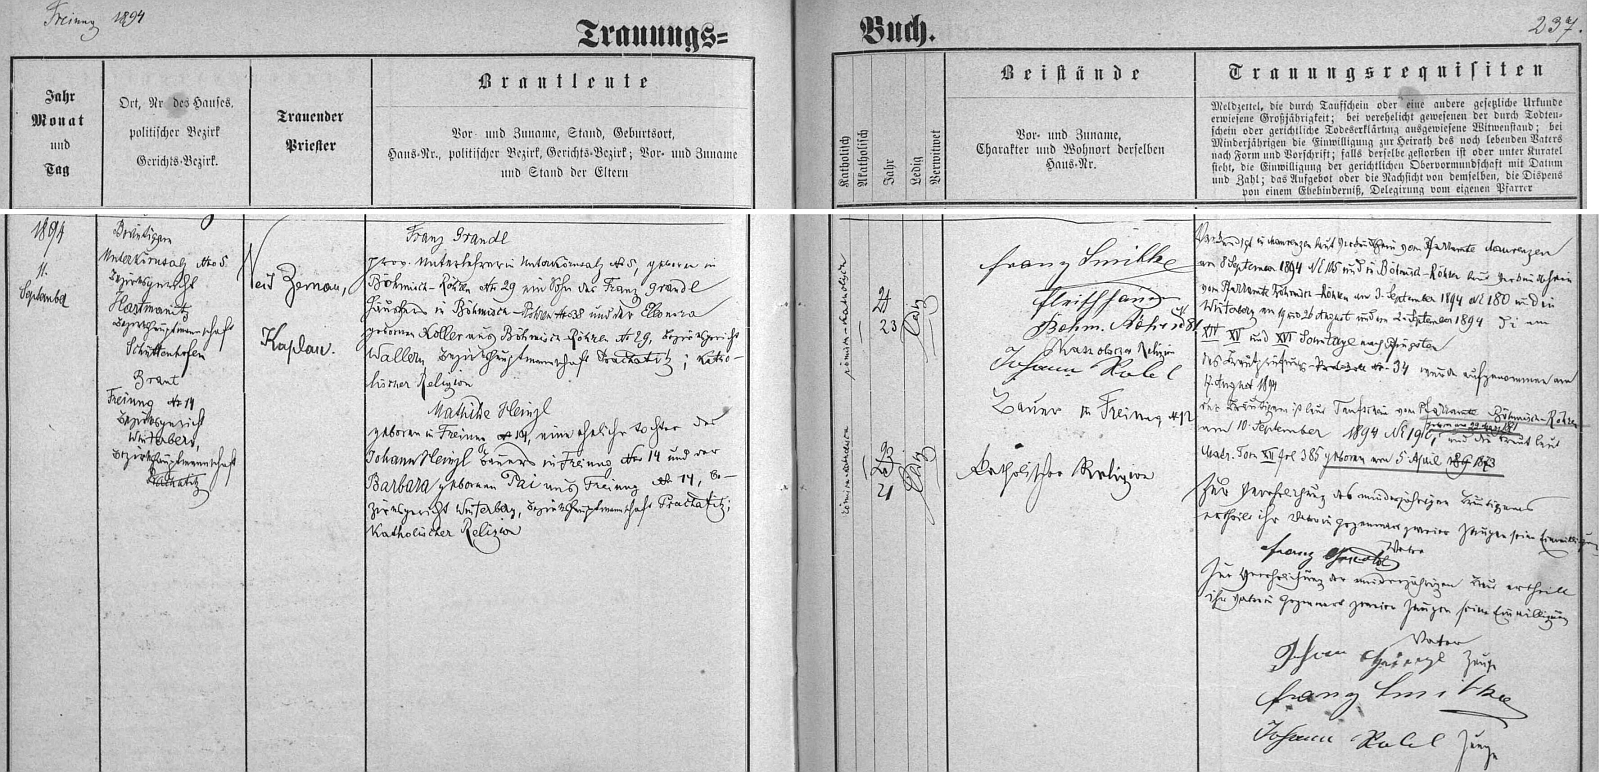 Freiung 1894
Trauungs=
Buch.
237.
Jahr
Monat
und
Tag
Ort, Nr. des Hauses,
politischer Bezirk
Gerichts-Bezirk.
Trauender
Priester
Brautleute
Vor- und Zuname, Stand, Geburtsort,
Haus-Nr., politischer Bezirk, Gerichts-Bezirk; Vor- und Zuname
und Stand der Eltern
Katholisch
Akatholisch
Jahr
Ledig
Verwitwet
Beistände
Vor- und Zuname,
Charakter und Wohnort derselben
Haus-Nr.
Trauungsrequisiten
Meldzettel, die durch Taufschein oder eine andere gesetzliche Urkunde
erwiesene Großjährigkeit; bei verehelicht gewesenen der durch Todten-
schein oder gerichtliche Todeserklärung ausgewiesene Witwenstand; bei
Minderjährigen die Einwilligung zur Heirath des noch lebenden Vaters
nach Form und Vorschrift; falls derselbe gestorben ist oder unter Kuratel
steht, die Einwilligung der gerichtlichen Obervormundschaft mit Datum
und Zahl; das Aufgebot oder die Nachsicht von demselben, die Dispens
von einem Ehehinderniß, Delegirung vom eigenen Pfarrer
1894
11.
September
Bräutigam
Unterkörnsalz Nro 5
Bezirksgericht
Hartmanitz
Bezirkshauptmannschaft
Schüttenhofen
Braut
Freiung Nr 14
Bezirksgericht
Winterberg,
Bezirkshauptmannschaft
Prachatitz
Zernau,
Kaplan.
Franz Grandl
prov. Unterlehrer in Unterkörnsalz No 5, geboren in
Böhmisch-Röhren No 29 ein Sohn des Franz Grandl
Häuslers in Böhmisch-Röhren No 38 und der Eleonora
geborenen Koller aus Böhmisch-Röhren No 29, Bezirksgericht
Wallern Bezirkshauptmannschaft Prachatitz; katho-
lischer Religion
Mathilde Heinzl
geboren in Freiung No 14, eine eheliche Tochter des
Johann Heinzl Bauers in Freiung Nro 14 und der
Barbara geborenen Pai aus Freiung No 14, Be-
zirksgericht Winterberg, Bezirkshauptmannschaft Prachatitz;
Katholischer Religion
römisch-katholisch
24
23
ledig
römisch-katholisch
21
ledig
Franz Smitka
Böhm. Röhren 81
Katholischer Religion
Johann Rabl
Bauer in Freiung No 12
Katholischer Religion
am 8 September 1894 No 115 und in Böhmisch-Röhren laut Verkündschein
vom Pfarramte Böhmisch-Röhren am 3. September 1894 No 180 und in
Winterberg am 19 und 26 August und am 2. September 1894 d. i. am
XIV XV und XVI Sonntage nach Pfingsten
Das Brautprüfungs-Protokoll No 34 wurde aufgenommen am
17 August 1894
Der Bräutigam ist laut Taufschein vom Pfarramte Böhmisch-Röhren
vom 10. September 1894 No 190, und die Braut laut
Matr. Tom XII fol 385 geboren am 5 April 1873
Zur Verehelichung des minderjährigen Bräutigams
ertheilt ihr Vater in Gegenwart zweier Zeugen seine Einwilligung
Franz Grandl Vater
Zur Verehelichung der minderjährigen Braut ertheilt
ihr Vater in Gegenwart zweier Zeugen seine Einwilligung
Vater
Johann Heinzl Zeuge
Franz Smitka
Johann Rabl Zeuge